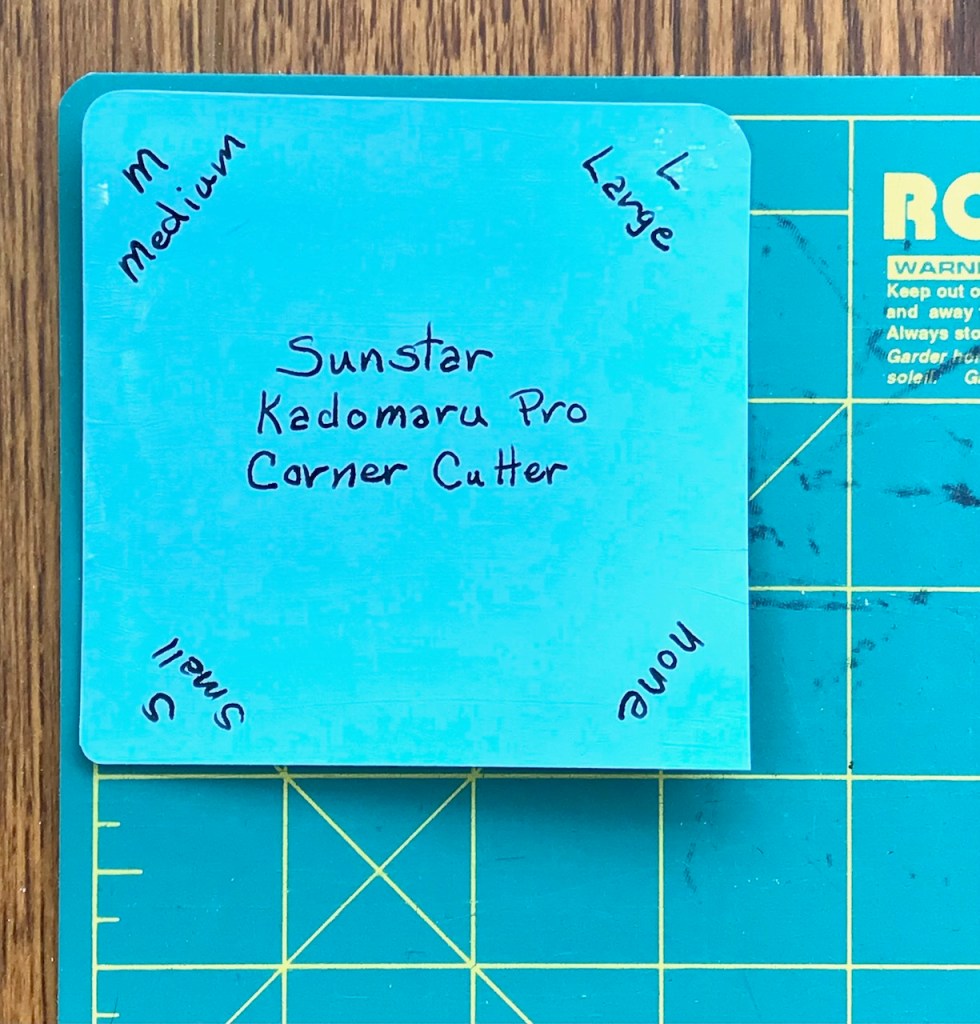 M
Medium
L
Large
Sunstar
Kadomaru Pro
Corner Cutter
Small
S
none
RO
WARNI
Keep out o
and away
Always sto
Garder hor
soleil. G